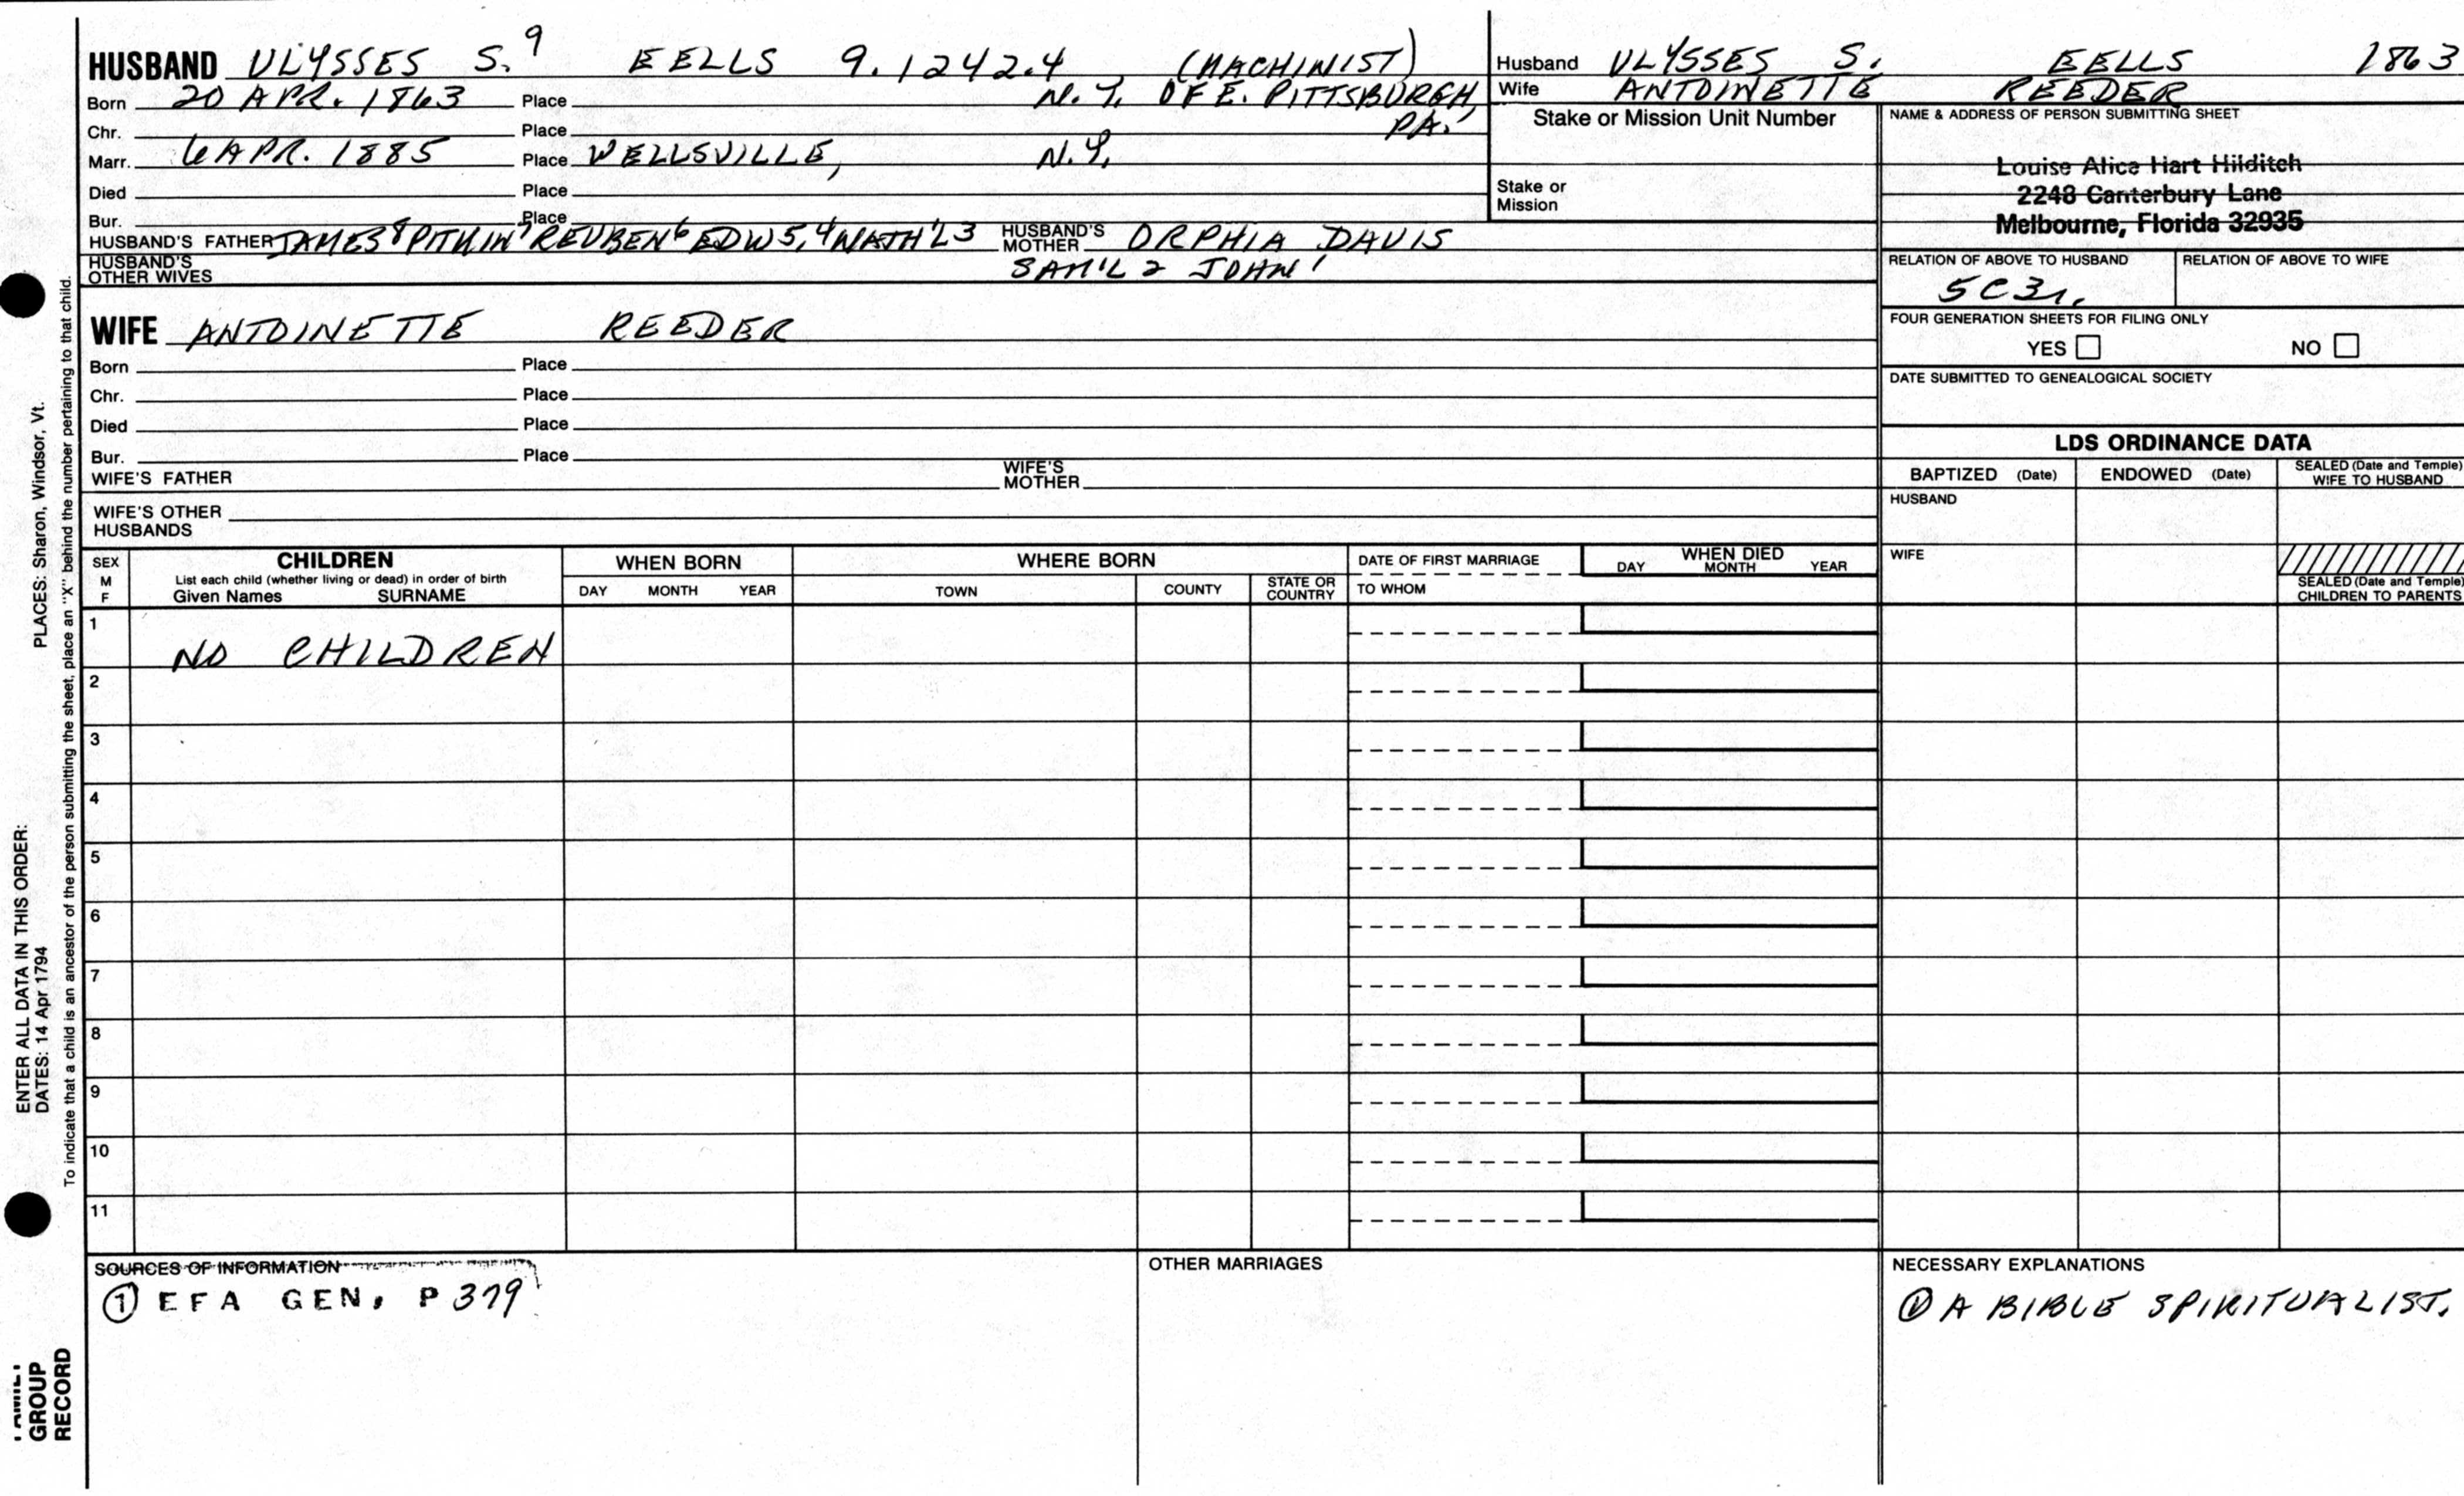 HUSBAND ULYSSES S.9 EELLS 9.1242.4 (MACHINIST)
Born 20 APR. 1863 Place N.Y. OF E. PITTSBURGH,
Chr. Place PA.
Marr. 6 APR. 1885 Place WELLSVILLE, N.Y.
Died Place
Bur. Place
HUSBAND'S FATHER JAMES8 PITKIN7 REUBEN6 EDW5,4 NATH'L3 HUSBAND'S MOTHER ORPHIA DAVIS
HUSBAND'S OTHER WIVES SAM'L2 JOHN1
WIFE ANTOINETTE REEDER
Born Place
Chr. Place
Died Place
Bur. Place
WIFE'S FATHER WIFE'S MOTHER
WIFE'S OTHER HUSBANDS
Husband ULYSSES S. EELLS 1863
Wife ANTOINETTE REEDER
Stake or Mission Unit Number
Stake or Mission
NAME & ADDRESS OF PERSON SUBMITTING SHEET
Louise Alice Hart Hilditch
2248 Canterbury Lane
Melbourne, Florida 32935
RELATION OF ABOVE TO HUSBAND RELATION OF ABOVE TO WIFE
5C3r.
FOUR GENERATION SHEETS FOR FILING ONLY
YES NO
DATE SUBMITTED TO GENEALOGICAL SOCIETY
LDS ORDINANCE DATA
BAPTIZED (Date) ENDOWED (Date) SEALED (Date and Temple) WIFE TO HUSBAND
HUSBAND
WIFE
SEALED (Date and Temple) CHILDREN TO PARENTS
SEX M F
CHILDREN
List each child (whether living or dead) in order of birth
Given Names SURNAME
WHEN BORN
DAY MONTH YEAR
WHERE BORN
TOWN COUNTY STATE OR COUNTRY
DATE OF FIRST MARRIAGE
TO WHOM
WHEN DIED
DAY MONTH YEAR
1 NO CHILDREN
2
3
4
5
6
7
8
9
10
11
SOURCES OF INFORMATION
① EFA GEN. P 379
OTHER MARRIAGES
NECESSARY EXPLANATIONS
① A BIBLE SPIRITUALIST.
ENTER ALL DATA IN THIS ORDER:
DATES: 14 Apr 1794 PLACES: Sharon, Windsor, Vt.
To indicate that a child is an ancestor of the person submitting the sheet, place an "X" behind the number pertaining to that child.
FAMILY
GROUP
RECORD